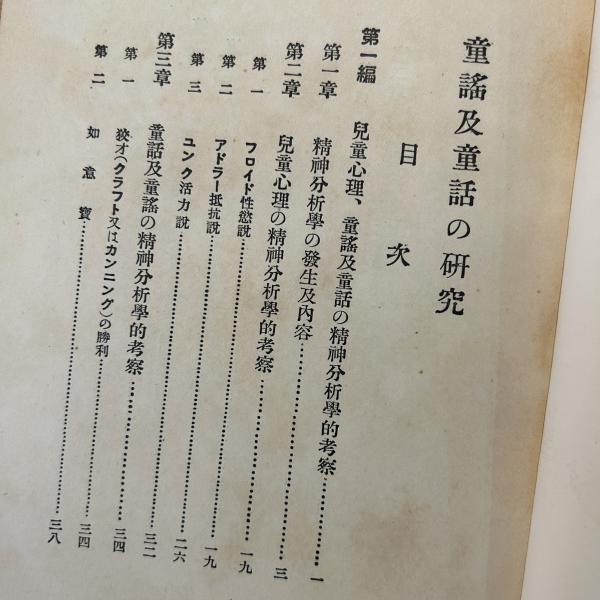 童謠及童話の研究
目次
第一編 兒童心理、童謠及童話の精神分析學的考察
第一章 精神分析學の發生及內容……一
第二章 兒童心理の精神分析學的考察……三
第一 フロイド性慾說……一九
第二 アドラー抵抗說……一九
第三 ユンク活力說……二六
第三章 童話及童謠の精神分析學的考察……三二
第一 狡才(クラフト又はカンニング)の勝利……三四
第二 如意寶……三四
三八